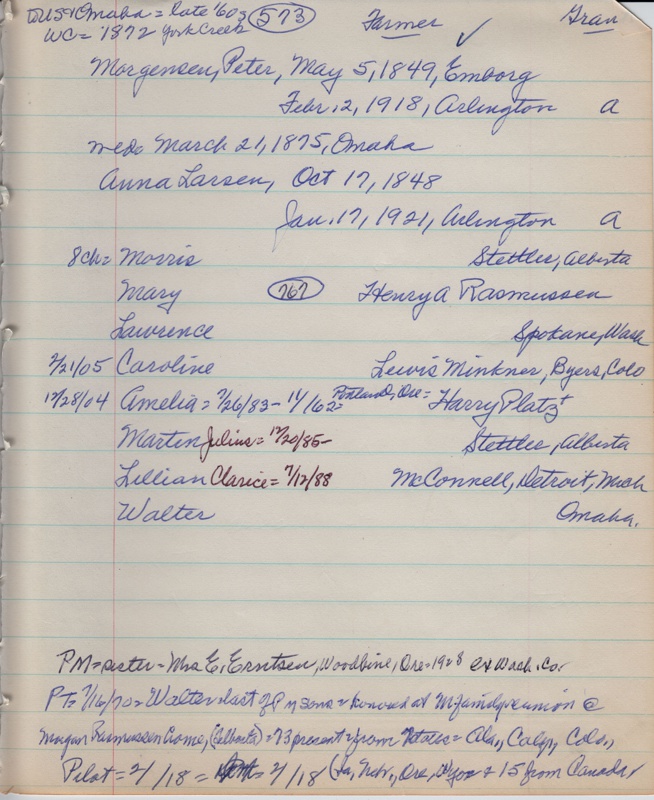 DUS & Omaha = late '60s (573) Farmer ✓ Gran
WC = '1872 York Creek
Morgensen, Peter, May 5, 1849, Emborg
Febr. 12, 1918, Arlington a
wed. March 21, 1875, Omaha
Anna Larsen, Oct 17, 1848
Jan. 17, 1921, Arlington a
8 ch = Morris Stettler, Alberta
Mary (767) Henry A Rasmussen
Lawrence Spokane, Wash
2/21/05 Caroline Lewis Minkner, Byers, Colo
12/28/04 Amelia = 7/26/83 - Portland, Ore = Harry Platz
Marten Julius = 12/20/85 - Stettler, Alberta
Lillian Clarice = 7/12/88 McConnell, Detroit, Mich
Walter Omaha.
PM = sister = Mrs E. Erntsen, Woodbine, Ore = 1928 ex Wash. Co.
PT = 7/16/70 = Walter = last of PM sons = honored at M family reunion @
Morgan Rasmussen home, (Alberta) = 73 present = from = Ala, Calif, Colo,
Pilot = 2/18 = 2/18 (Ia, Nebr, Ore, Wyo + 15 from Canada